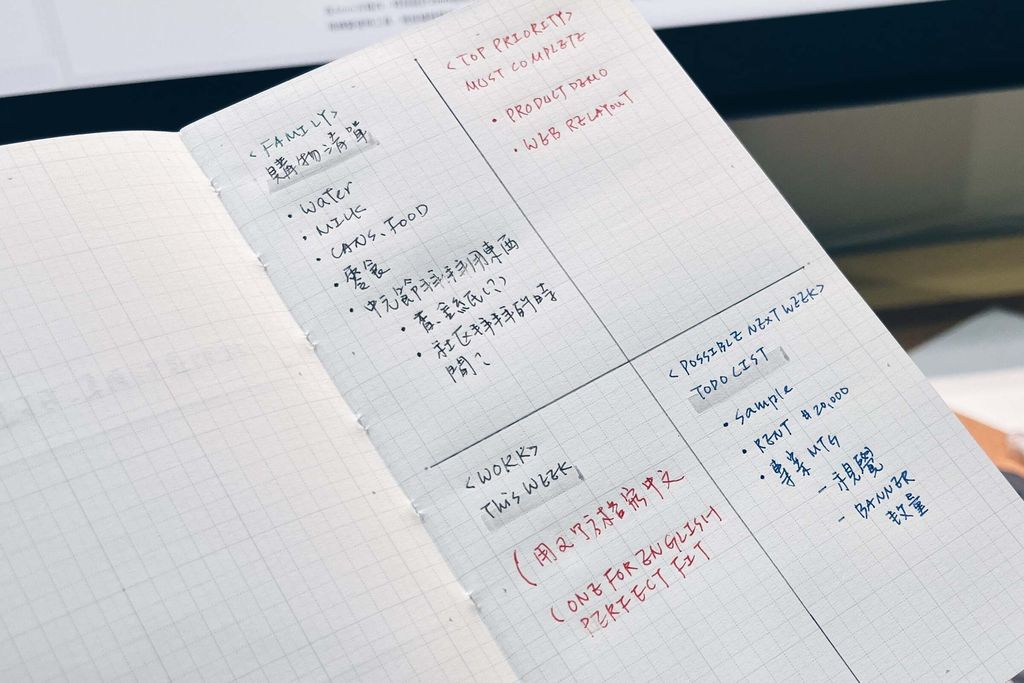 <FAMILY>
購物清單
• water
• MILK
• CANS、FOOD
• 零食
• 中元節拜拜用東西
• 查金紙(?)
• 社区拜拜的時
間?
<TOP PRIORITY>
MUST COMPLETE
• PRODUCT DEMO
• WEB RELAYOUT
<WORK>
THIS WEEK
(用2方格寫中文
(ONE FOR ENGLISH
PERFECT FIT
<POSSIBLE NEXT WEEK>
TODO LIST
• sample
• RENT $20,000
• 專案 MTG
- 視覺
- BANNER
數量